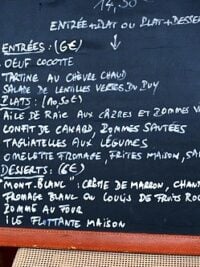 14,50€
ENTRÉE+PLAT OU PLAT+DESSE
ENTRÉES : (6€)
OEUF COCOTTE
TARTINE AU CHÈVRE CHAUD
SALADE DE LENTILLES VERTES DU PUY
PLATS : (10,50€)
AILE DE RAIE AUX CÂPRES ET POMMES V
CONFIT DE CANARD, POMMES SAUTÉES
TAGLIATELLES AUX LÉGUMES
OMELETTE FROMAGE, FRITES MAISON, SA
DÉSSERTS : (6€)
"MONT-BLANC" : CRÈME DE MARRON, CHANT
FROMAGE BLANC OU COULIS DE FRUITS ROU
POMME AU FOUR
ILE FLOTTANTE MAISON